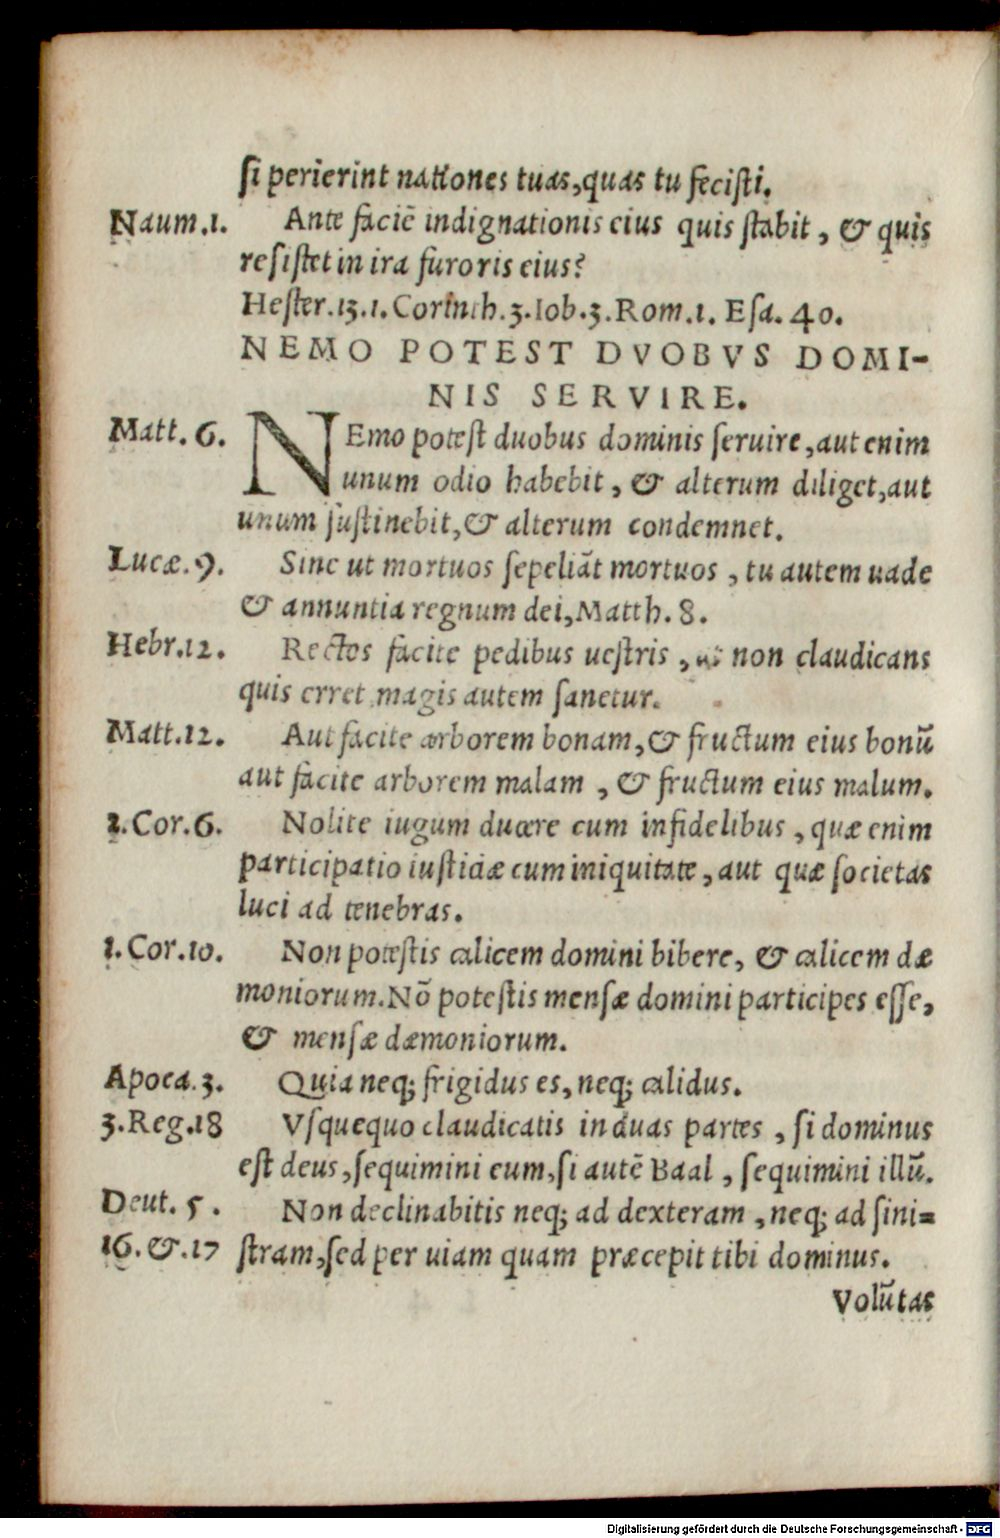 si perierint nationes tuas,quas tu fecisti.
Naum.1. Ante faciē indignationis eius quis stabit, & quis
resistet in ira furoris eius?
Hester.13.1.Corinth.3.Iob.3.Rom.1. Esa.40.
NEMO POTEST DVOBVS DOMI-
NIS SERVIRE.
Matt. 6. NEmo potest duobus dominis seruire,aut enim
unum odio habebit, & alterum diliget,aut
unum sustinebit,& alterum condemnet.
Lucæ.9. Sinc ut mortuos sepeliāt mortuos, tu autem uade
& annuntia regnum dei,Matth. 8.
Hebr.12. Rectos facite pedibus uestris, ut non claudicans
quis erret magis autem sanetur.
Matt.12. Aut facite arborem bonam,& fructum eius bonū
aut facite arborem malam, & fructum eius malum.
2.Cor.6. Nolite iugum ducere cum infidelibus, quæ enim
participatio iusticiæ cum iniquitate, aut quæ societas
luci ad tenebras.
1.Cor.10. Non potestis calicem domini bibere, & calicem dæ
moniorum.Nō potestis mensæ domini participes esse,
& mensæ dæmoniorum.
Apoca.3. Quia neq; frigidus es, neq; calidus.
3.Reg.18 Vsquequo claudicatis in duas partes, si dominus
est deus,sequimini eum,si autē Baal, sequimini illū.
Deut. 5. Non declinabitis neq; ad dexteram, neq; ad sini=
16.&.17 stram,sed per uiam quam præcepit tibi dominus.
Volūtas
Digitalisierung gefördert durch die Deutsche Forschungsgemeinschaft - DFG